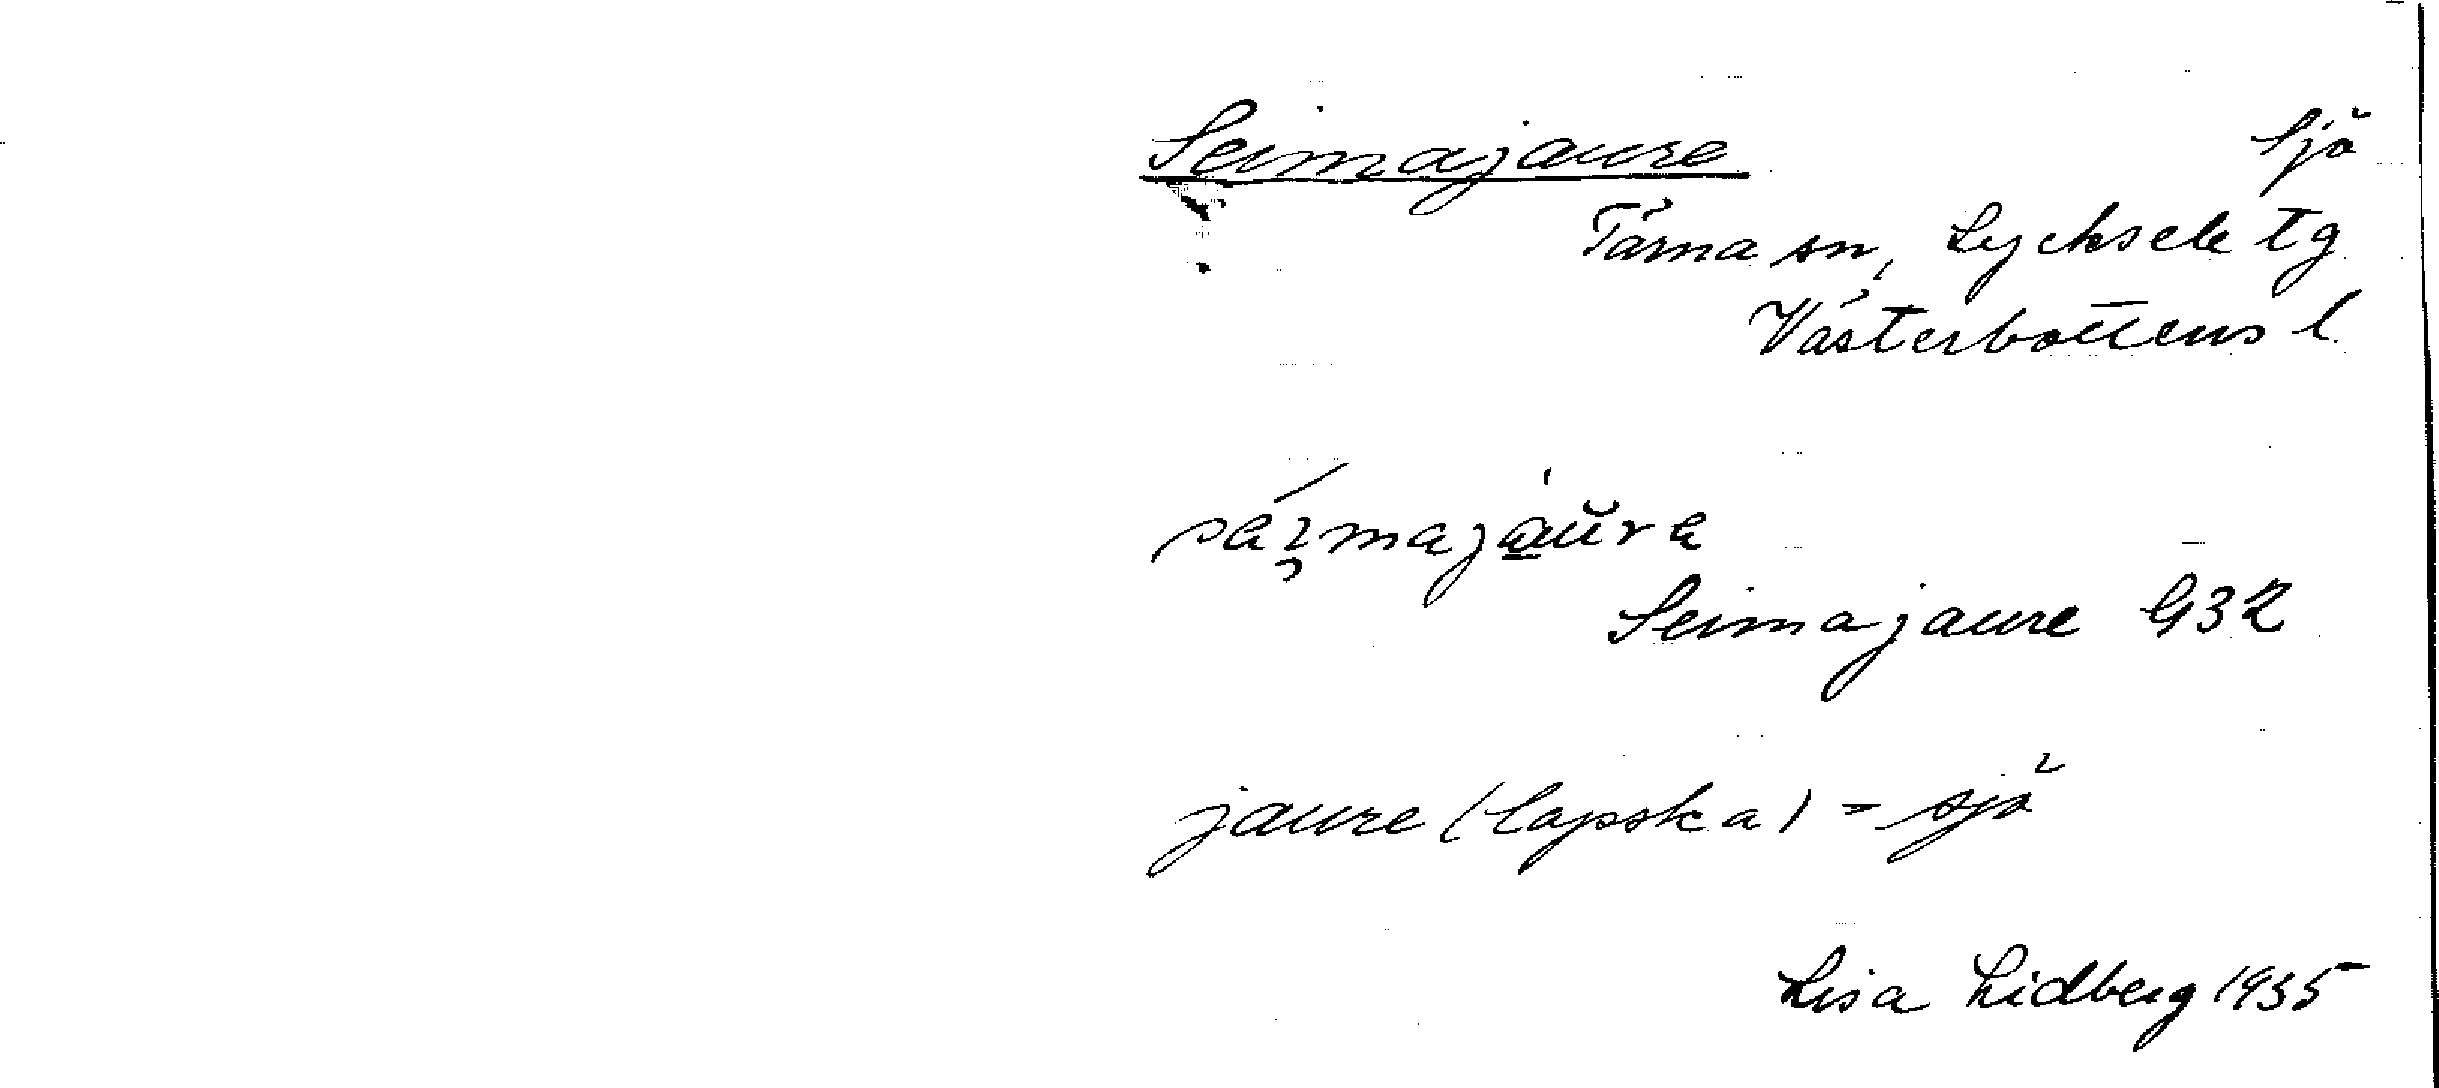 Seimajaure Sjö
Tärna sn, Lycksele tg
Västerbottens l
Seimajaure G32
jaure (lapska) = sjö
Lisa Lidberg 1935